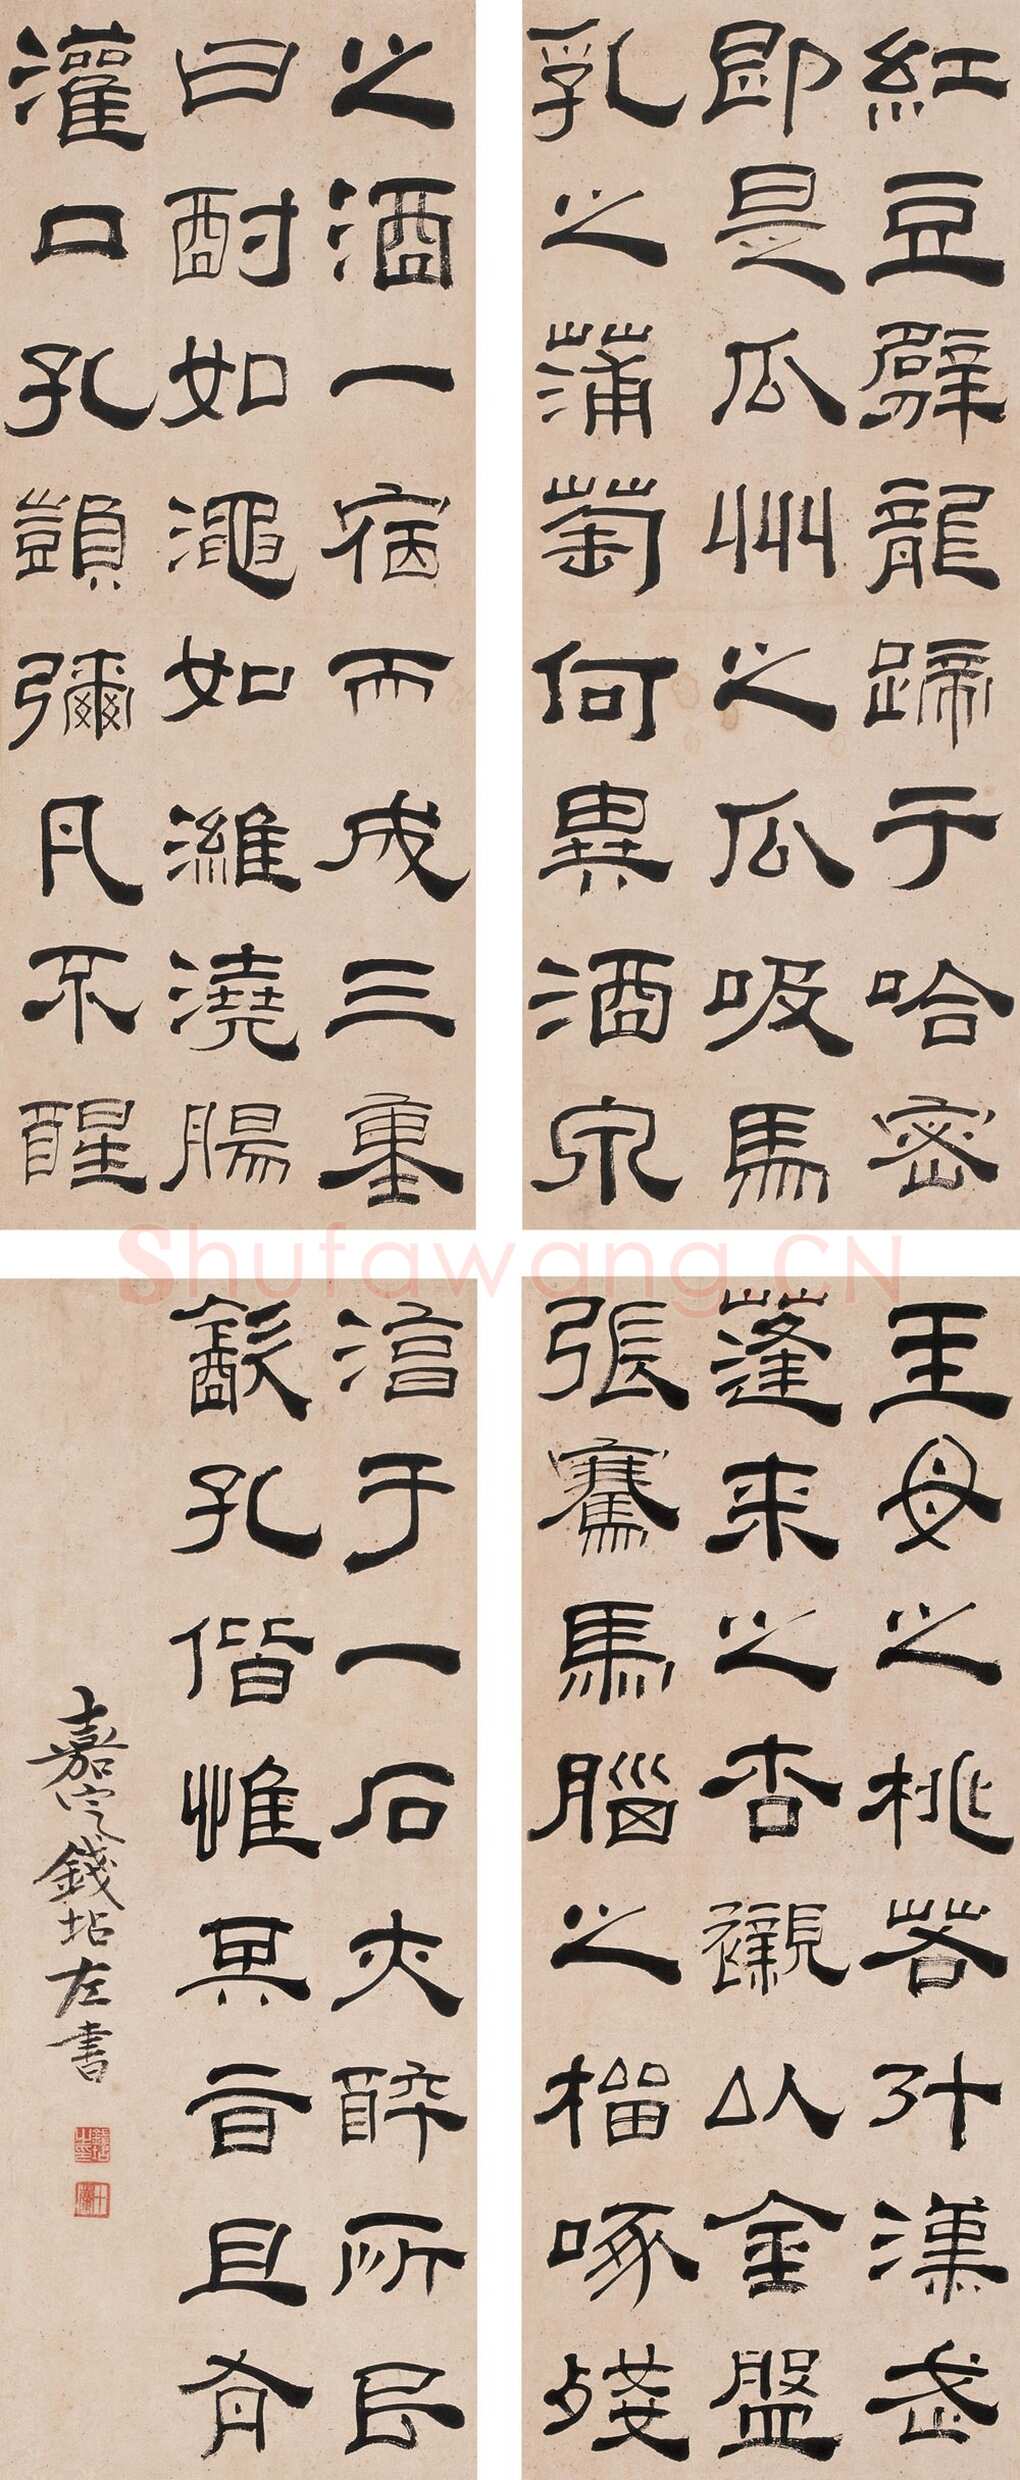 王母之桃若計漢武
蓬萊之杏襯以金盤
張騫馬腦之榴啄殘
紅豆劈龍蹄于哈密
即是瓜州之瓜吸馬
乳之蒲萄何異酒泉
之酒一宿而成三重
曰酎如澠如濰澆腸
灌口孔顗彌月不醒
淳于一石亦醉所㠯
㱃孔偕惟其旨且有
嘉定錢坫左書
Shufawang.CN